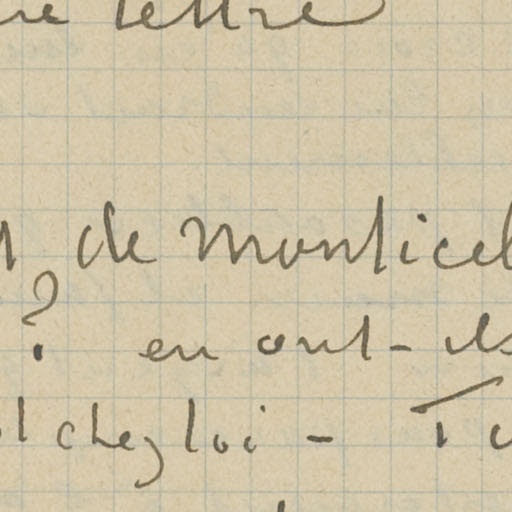 re lettre
de Monticel
? en ont-ils
chez toi - Tu